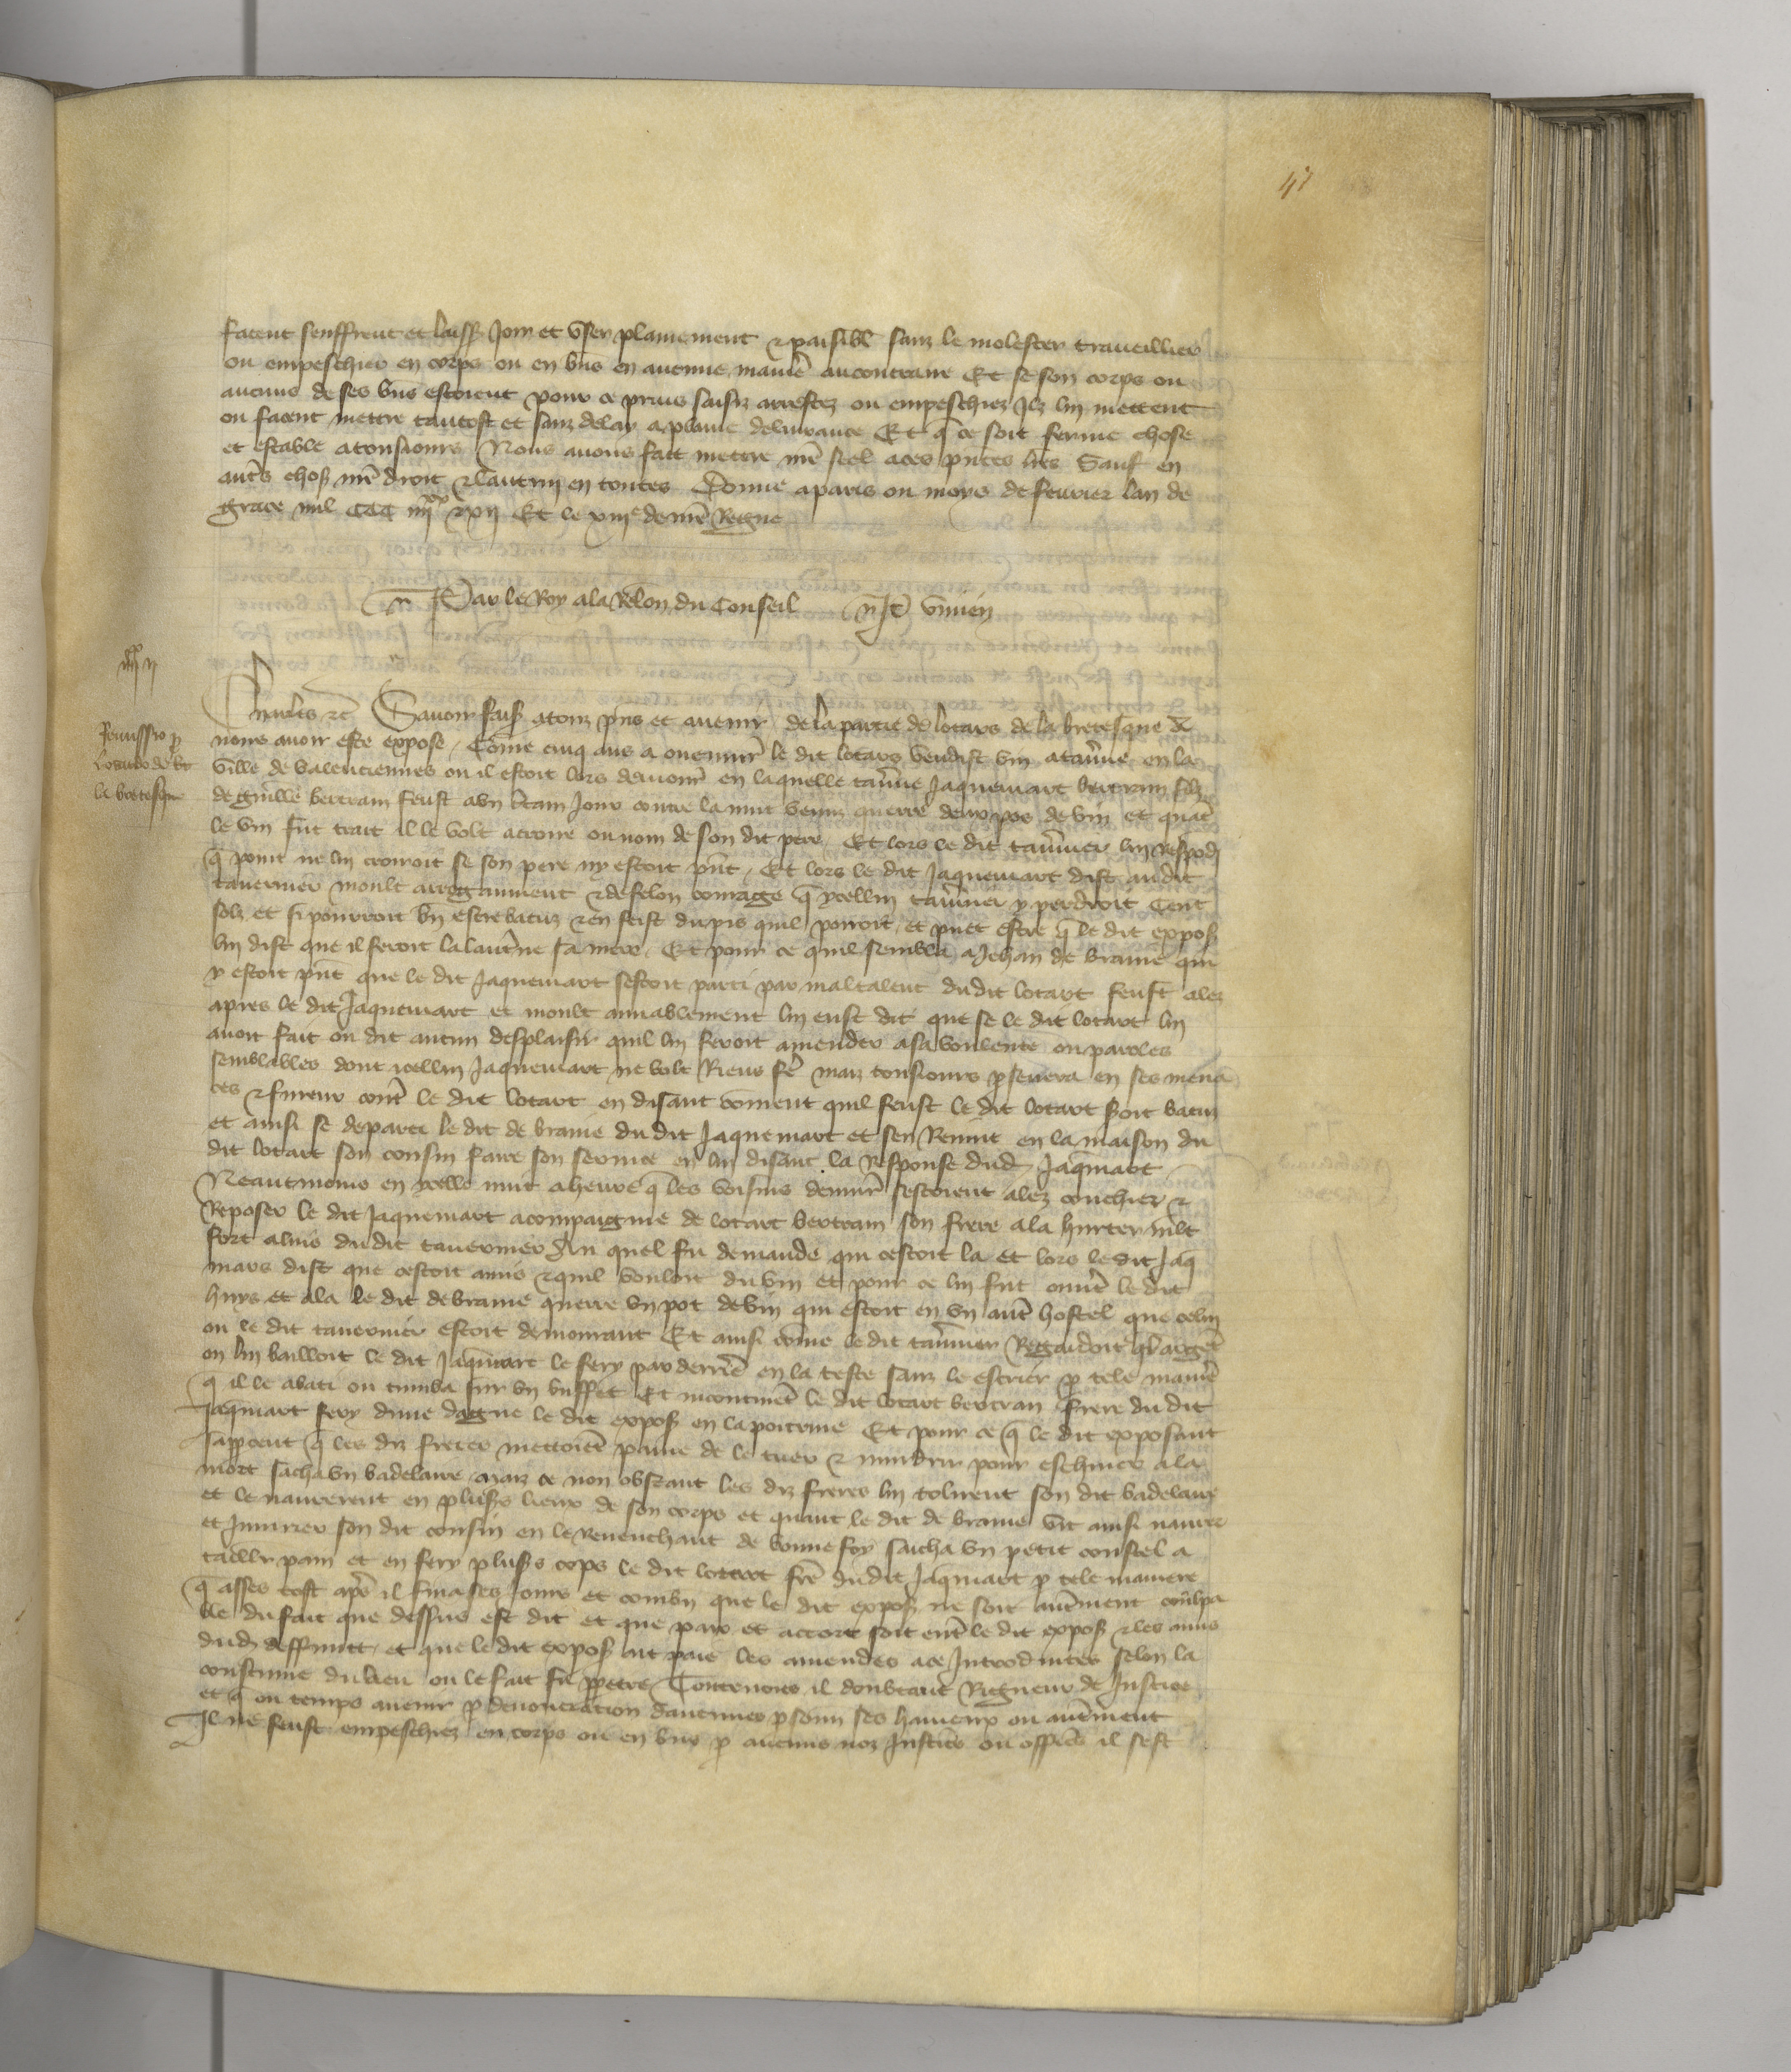 47
facent seuffrent et laissẽ Joir et vser plainement & paisiblẽ sanz le molester traueillier
ou empeschier en corps ou en biẽs en aucune maniẽ au contraire Et se son corps ou
aucuns de ses biẽs estoient pour ce prins saisiz arrestez ou empeschiez Ilz lui mettent
ou facent mettre tantost et sanz delay a plaine deliurance Et q̃ ce soit ferme chose
et estable a tousiours Nous auons fait mettre nr̃e seel a ces pñtes lr̃es Sauf en
autr̃s chosẽ nr̃e droit & lautruy en toutes Donne a paris ou moys de feurier lan de
grace mil CCC iiijxx & xij Et le xiije de nr̃e Regne
Par le Roy a la Relon du Conseil
iiijxx ij
Remissio p
Lotardo de
la bretesque
Charles &c Sauoir faisẽ a touz pñs et auenir de la partie de lotars de la bretesque
nous auoir este expose Cõme cinq ans a ou enuirõ le dit lotars vendist vin a tauẽne en la
ville de valenciennes ou il estoit lors demourñ en laquelle tauẽne Jaquemart bertran filz
de guille bertram feust a vn ctain Jour contre la nuit venuz querre deux pos de vin et quãt
le vin fut trait il le volt acroire ou nom de son dit pere Et lors le dit tauẽnier lui respõdi
q̃ point ne lui croiroit se son pere ny estoit pñt Et lors le dit Jaquemart dist au dit
tauernier moult arrogaument & de felon courage q̃ ycellui tauẽnier y perdroit Cent
solz et si pourroit bñ estre batuz & en feist du pis quil porroit et puet estre q̃ le dit exposẽ
lui dist que il feroit la lauẽne sa mere Et pour ce quil sembla a Jehan de braine qui
y estoit pñt que le dit Jaquemart sestoit parti par maltalent dudit lotart feust alez
apres le dit Jaquemart et moult amiablement lui eust dit que se le dit lotart lui
auoit fait ou dit aucun desplaisir quil lui feroit amender a sa voulente ou paroles
semblables dont icellui Jaquemart ne volt Riens fẽ maiz tousiours pseuera en ses mena
ces & fureur contr̃ le dit lotart en disant cõment quil feust le dit lotart seroit batuz
et ainsi se departi le dit de braine du dit Jaquemart et sen Reuint en la maison du
dit lotart son cousin faire son seruice en lui disant la Response dudẽ Jaqmart
Neantmoins en ycelle nuit a heure q̃ les voisins denuirõ sestoient alez couchier &
Reposer le dit Jaquemart acompaigne de lotart bertram son frere ala hurter mlt
fort a luis du dit tauernier Au quel fu demande qui cestoit la et lors le dit Jaq
mars dist que cestoit amis & quil vouloit du vin et pour ce lui fut ouuẽt le dit
huys et ala le dit de braine querre vn pot de vin qui estoit en vn autr̃ hostel que celui
ou le dit tauernier estoit demourant Et ainsi cõme le dit tauẽnier Regardoit ql argẽt
on lui bailloit le dit Jaqmart le fery par derriẽ en la teste sanz le escrier p tele maniẽ
q il le abati ou tumba sur vn buffet Et incontinẽt le dit lotart bertran frere du dit
Jaqmart fery dune dague le dit exposẽ en la poitrine Et pour ce q̃ le dit exposant
sapcent q̃ les diz freres mettoiẽt paine de le tuer & murdrir pour escheuer a la
mort sacha vn badelaire maiz ce non obstant les diz freres lui tolirent son dit badelaire
et le naurerent en plusẽs lieux de son corps et quant le dit de braine vit ainsi naurer
et Jniurier son dit cousin en le Reuenchant de bonne foy sacha vn petit coustel a
taillr pain et en fery plusẽs cops le dit lotart frẽ dudit Jaqmart p tele maniere
q̃ asses tost apẽs il fina ses Jours et combñ que le dit exposẽ ne soit autr̃ment coulpa
ble du fait que dessus est dit et que paix et accort soit entr̃ le dit exposẽ & les amis
dudẽ deffunct et que le dit exposẽ ait paie les amendes a ce Introduites selon la
coustume du lieu ou le fait fu ppetre Touteuois il doubtant Rigueur de Justice
et q̃ ou temps auenir p denonciation daucunes psonñ ses haineux ou autr̃ment
Il ne feust empeschiez en corps ou en biẽs p aucuns noz Justicẽs ou officẽs il sest